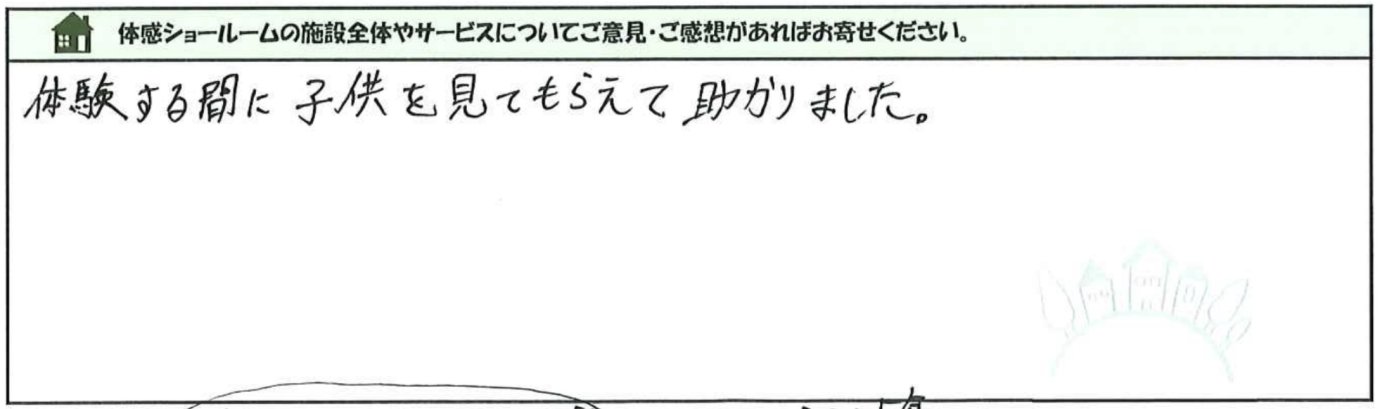 体感ショールームの施設全体やサービスについてご意見・ご感想があればお寄せください。
体験する間に子供を見てもらえて助かりました。